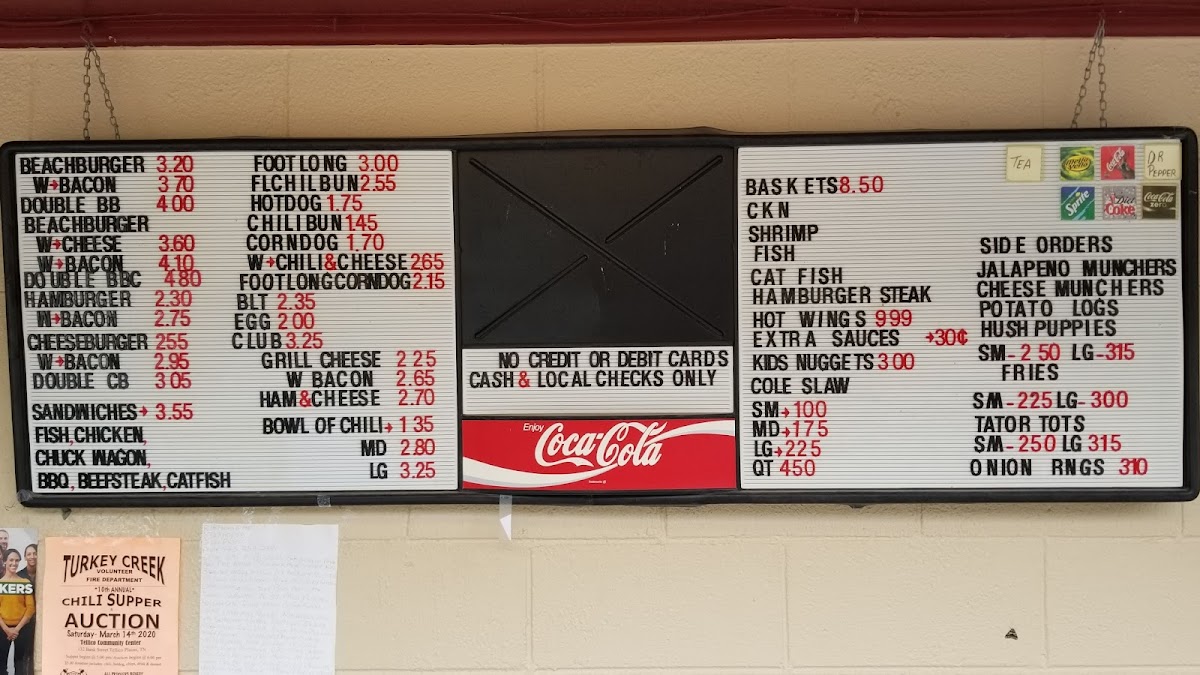 BEACHBURGER 3.20
W→BACON 3 70
DOUBLE BB 4 00
BEACHBURGER
W→CHEESE 3.60
W→BACON 4.10
DOUBLE BBC 4 80
HAMBURGER 2.30
W→BACON 2.75
CHEESEBURGER 2 55
W→BACON 2.95
DOUBLE CB 3 05
SANDWICHES→ 3.55
FISH, CHICKEN,
CHUCK WAGON,
BBQ, BEEFSTEAK, CATFISH
FOOTLONG 3.00
FLCHILBUN 2.55
HOTDOG 1.75
CHILIBUN 1.45
CORNDOG 1.70
W→CHILI&CHEESE 2.65
FOOTLONGCORNDOG 2.15
BLT 2.35
EGG 2 00
CLUB 3.25
GRILL CHEESE 2 25
W BACON 2.65
HAM&CHEESE 2.70
BOWL OF CHILI→ 1 35
MD 2.80
LG 3.25
NO CREDIT OR DEBIT CARDS
CASH & LOCAL CHECKS ONLY
Enjoy
Coca-Cola
BASKETS 8.50
CKN
SHRIMP
FISH
CAT FISH
HAMBURGER STEAK
HOT WINGS 9 99
EXTRA SAUCES →30¢
KIDS NUGGETS 3 00
COLE SLAW
SM→1 00
MD→1 75
LG→2 25
QT 4 50
TEA
Mello Yello
Coca-Cola
DR PEPPER
Sprite
Diet Coke
Coca-Cola zero
SIDE ORDERS
JALAPENO MUNCHERS
CHEESE MUNCHERS
POTATO LOGS
HUSH PUPPIES
SM-2 50 LG-3 15
FRIES
SM-2 25 LG-3 00
TATOR TOTS
SM-2 50 LG 3 15
ONION RNGS 3 10
KERS
TURKEY CREEK
VOLUNTEER
FIRE DEPARTMENT
*10th ANNUAL*
CHILI SUPPER
AUCTION
Saturday- March 14th 2020
Tellico Community Center